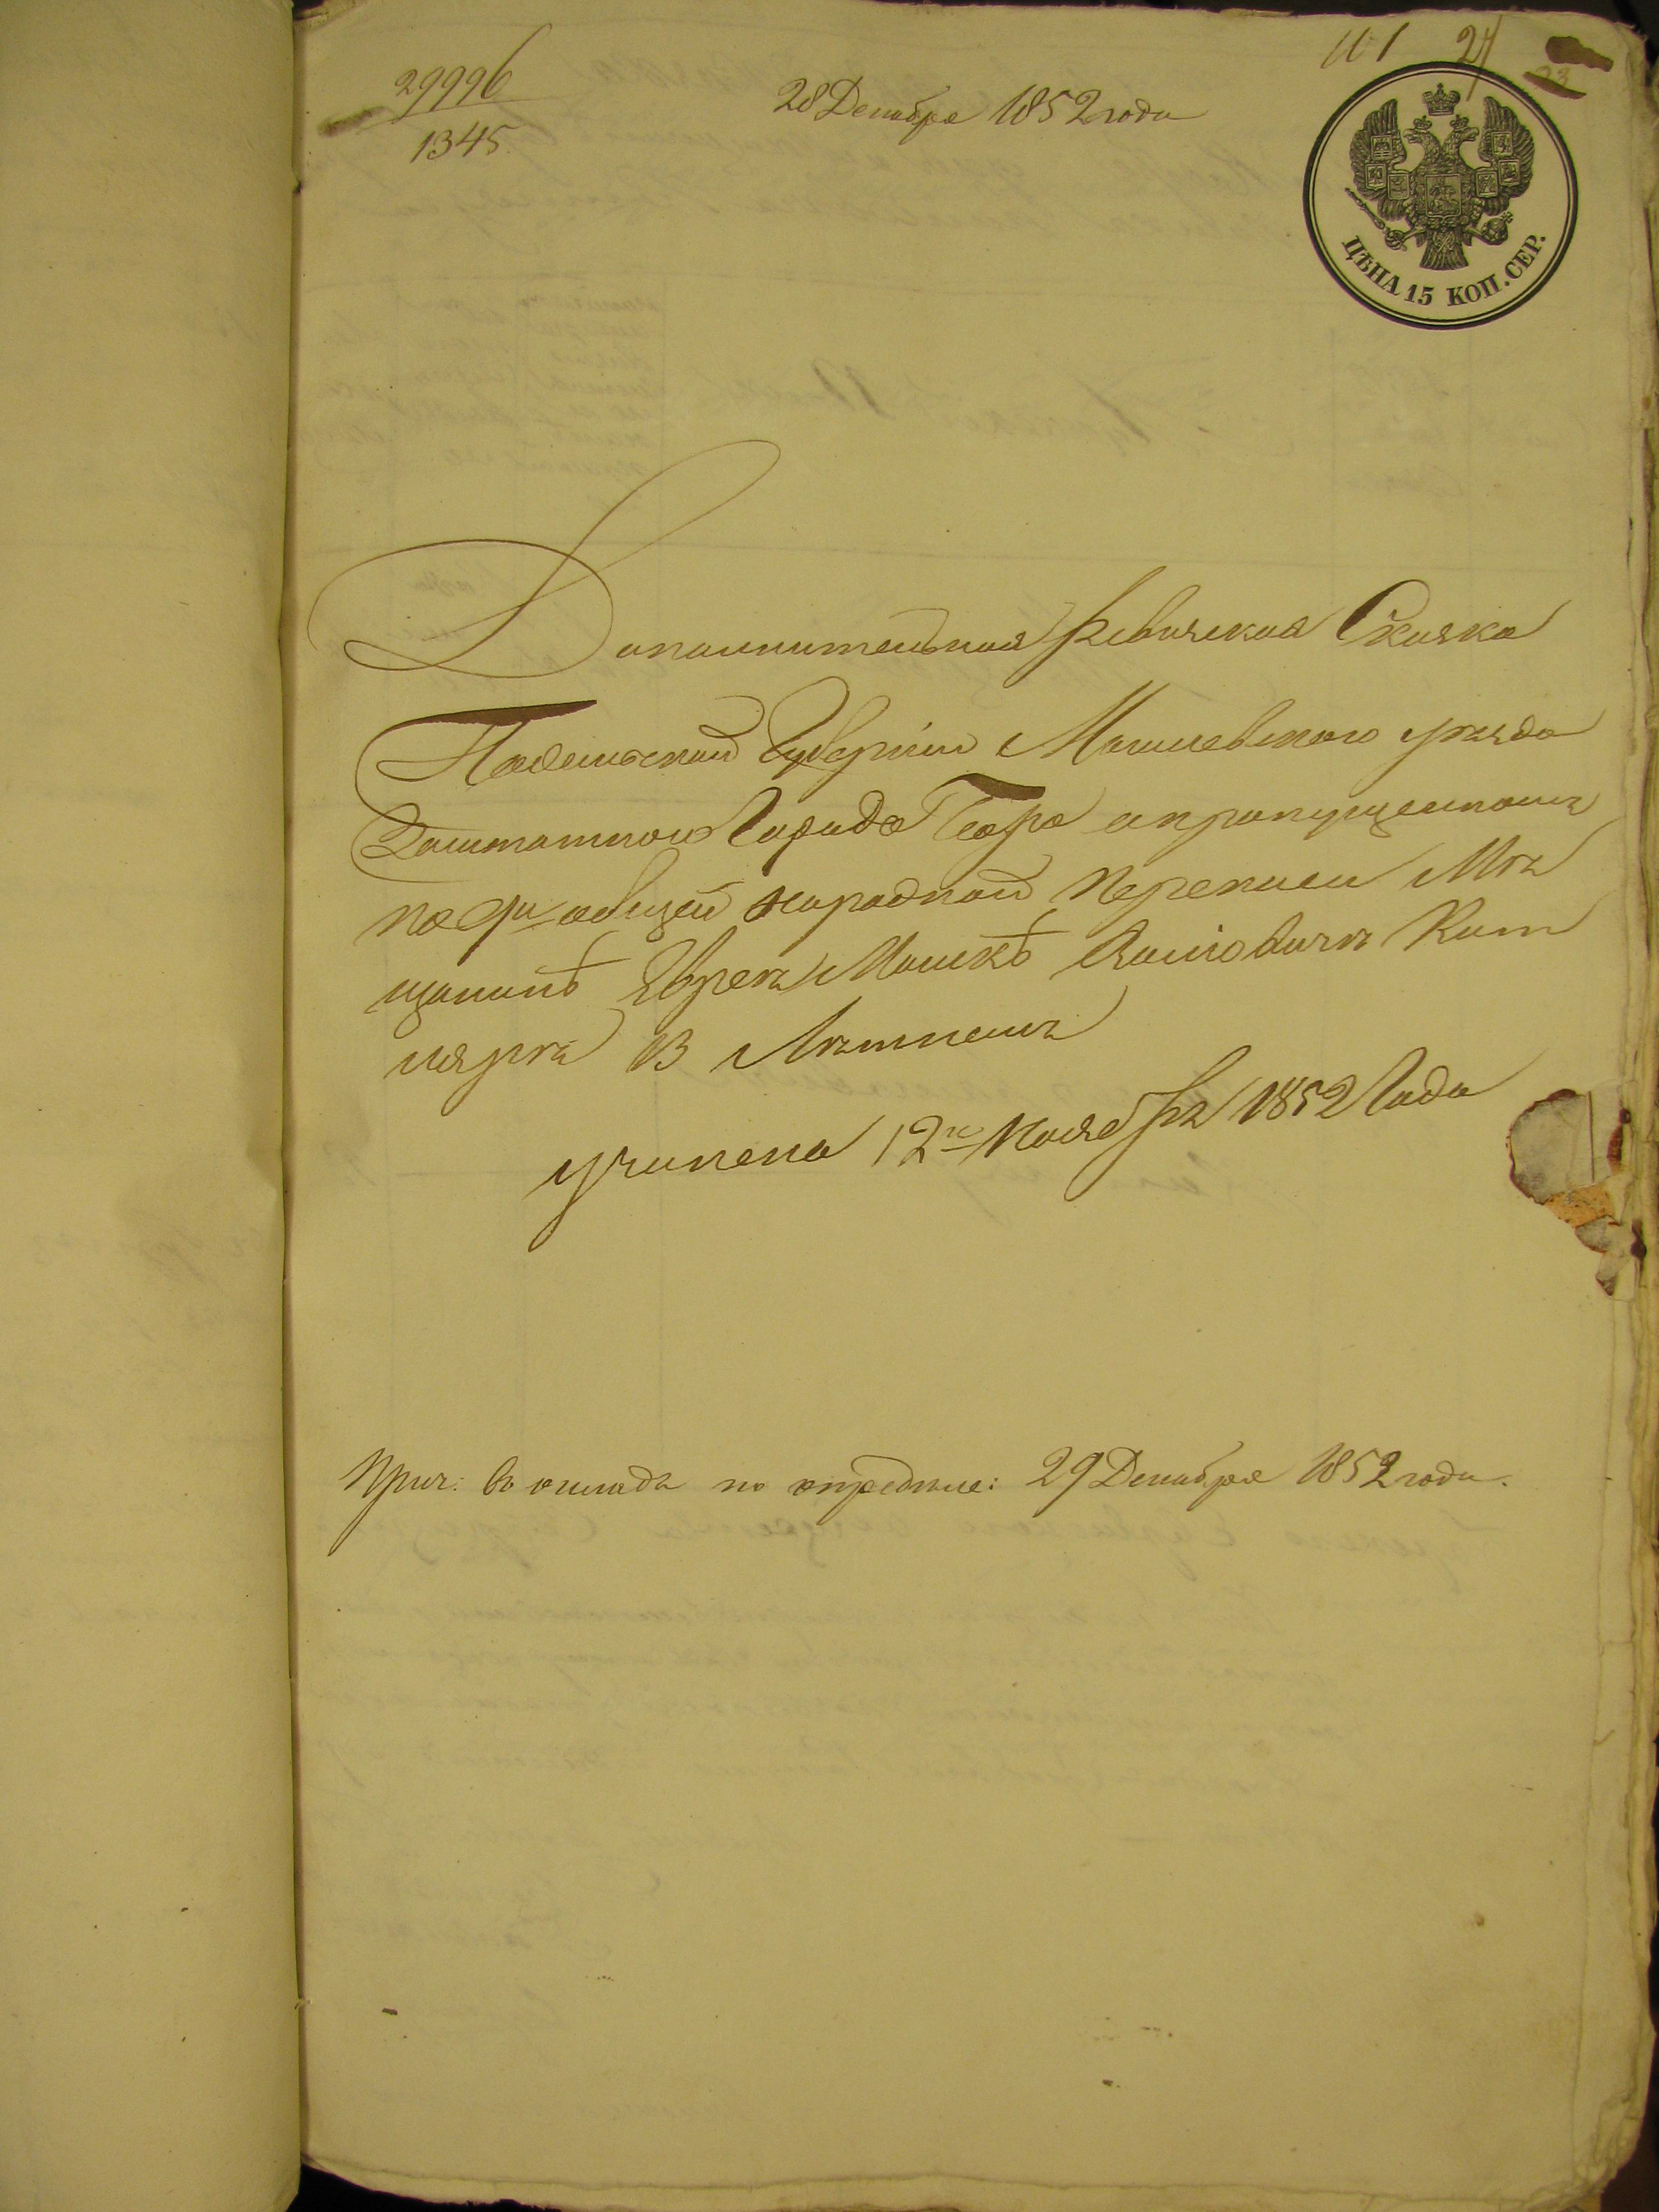 29996
1345
28 Декабря 1852 года
101 24
23
ЦѢНА 15 КОП. СЕР.
Дополнительная Ревизская Сказка
Подольской Губернiи Могилевского уезда
Заштатного Города Бара опропущенномъ
по 9й общей народной переписи Мѣ
щанинѣ Евреѣ Мошкѣ
13 Лѣтнемъ
учинена 12го Ноября 1852 Года
Прич: въ окладъ по опредѣле: 29 Декабря 1852 года.